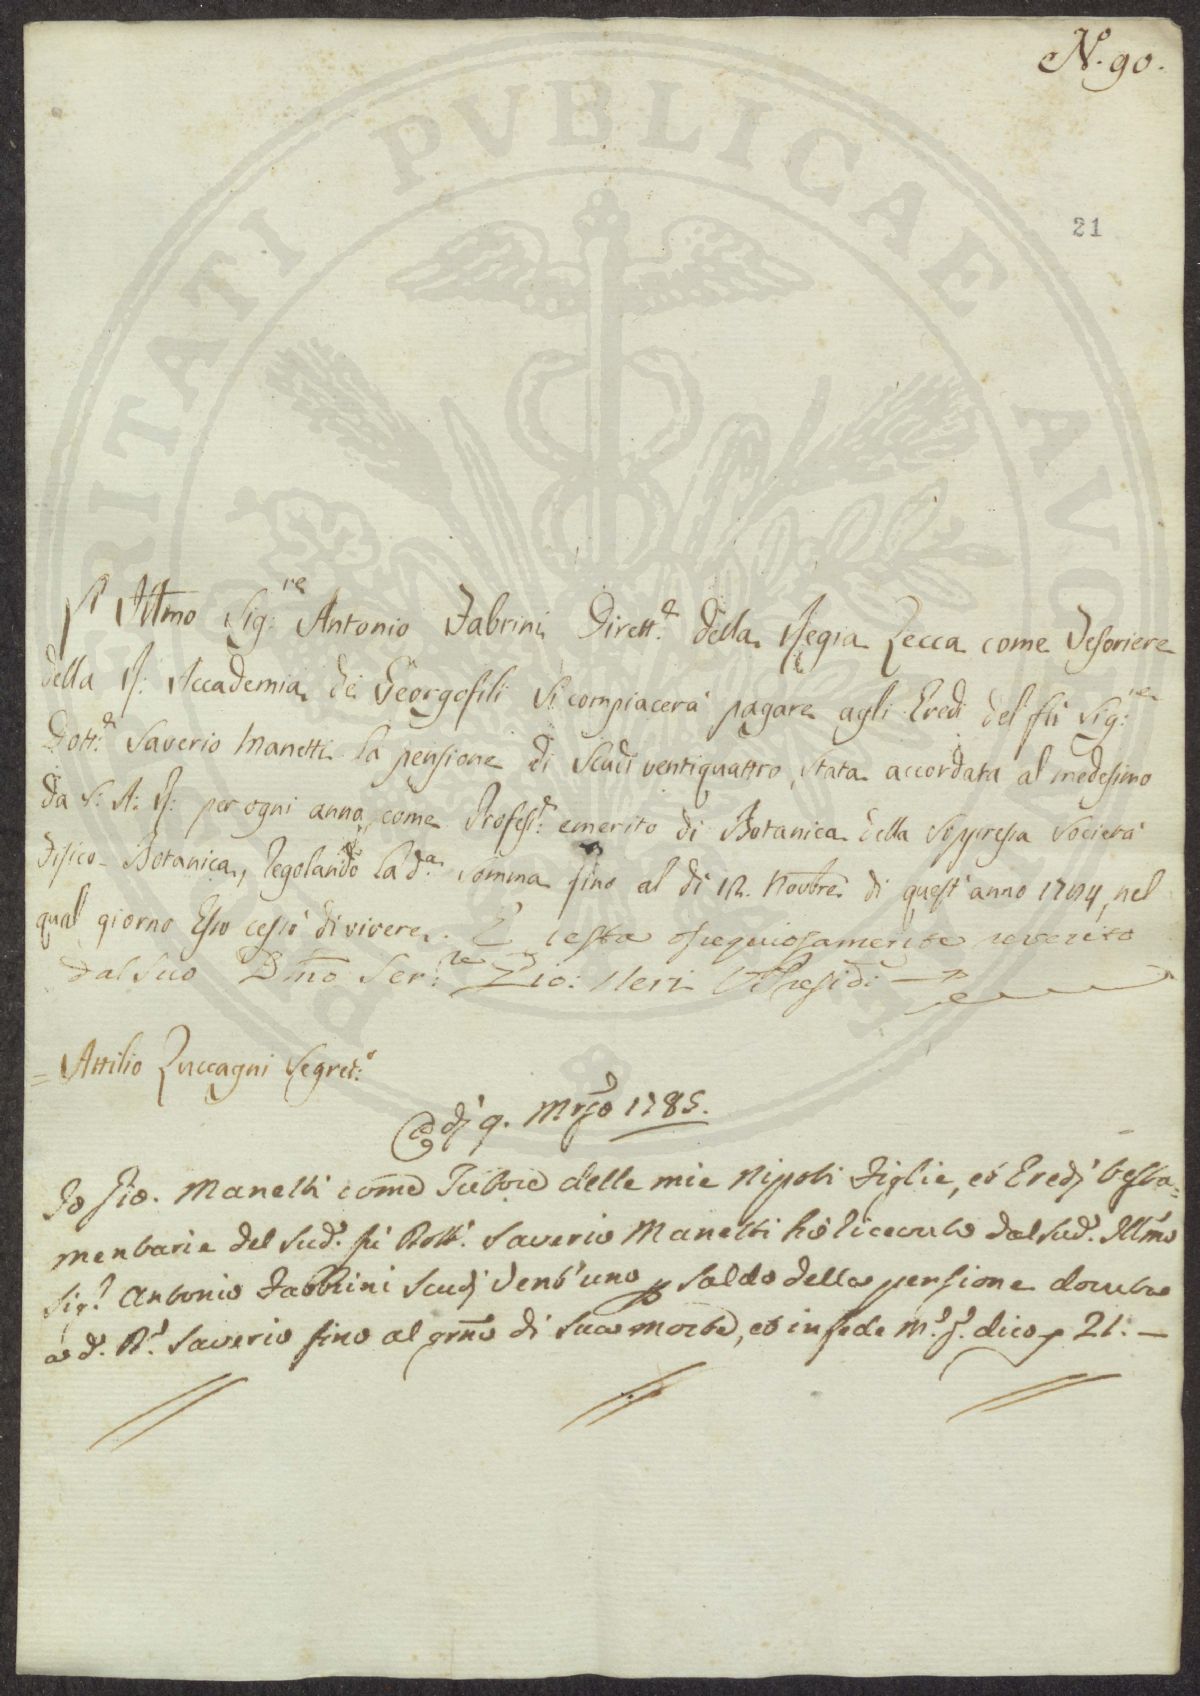 N.º 90.
21
PVBLICAE
L' Ill:mo Sig:re Antonio Fabrini Dirett:e della Regia Zecca come Tesoriere
della R: Accademia dei Georgofili si compiacerà pagare agli Eredi del fù Sig:re
Dott:e Saverio Manetti la pensione di Scudi ventiquattro, stata accordata al medesimo
da S: A: R: per ogni anno, come Profess:e emerito di Botanica della Soppressa Società
Fisico-Botanica, regolando la d:a somma fino al dì 12. Novbre di quest'anno 1784, nel
qual giorno Esso cessò di vivere. E resta ossequiosamente reverito
dal suo D:mo Ser:re Gio: Neri V: Presid:
= Attilio Zuccagni Segret:o
Adj 9. Mrzo 1785.
Io Gio. Manetti come Tutore delle mie Nipoti Figlie, ed Eredj testa=
mentarie del sud.º fù Dott.e Saverio Manetti hò ricevuto dal sud.º Ill:mo
Sig.e Antonio Fabbrini Scudj Vent'uno p saldo della pensione dovuta
a d.º D.e Saverio fino al grno di sua morte, ed in fede M.º P.ª dico p 21. —